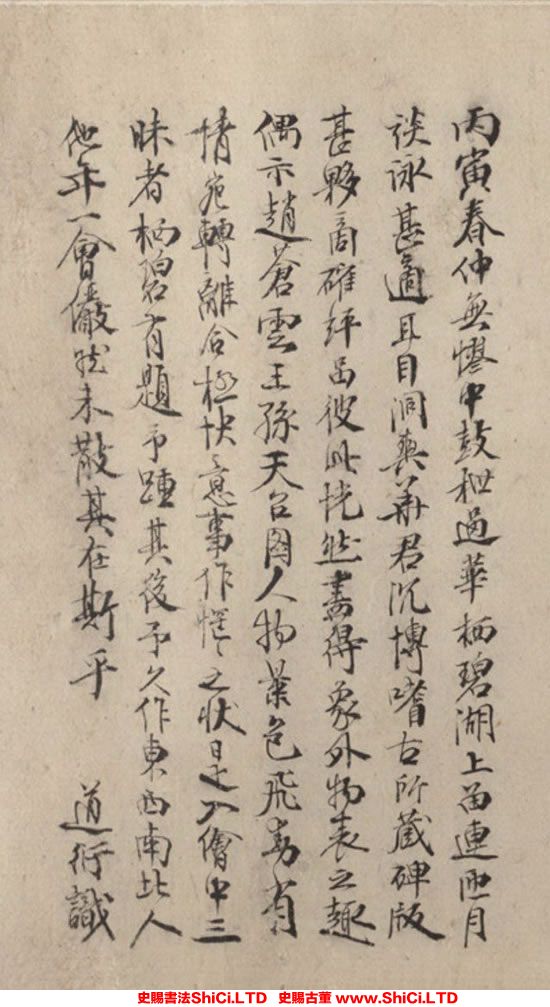 丙寅春仲無憀中鼓枻過華栖碧湖上留連匝月
談詠甚適耳目洞爽華君沉博嗜古所藏碑版
甚夥商確評品彼此恍然盡得象外物表之趣
偶示趙蒼雲王孫天台圖人物景色飛動有
情宛轉離合極快意事作惺惺之狀是入繪中三
昧者栖碧有題予踵其後予久作東西南北人
他年一會儼然未散其在斯乎
道衍識
史賜書法ShiCi.LTD 史賜古董 www.ShiCi.LTD